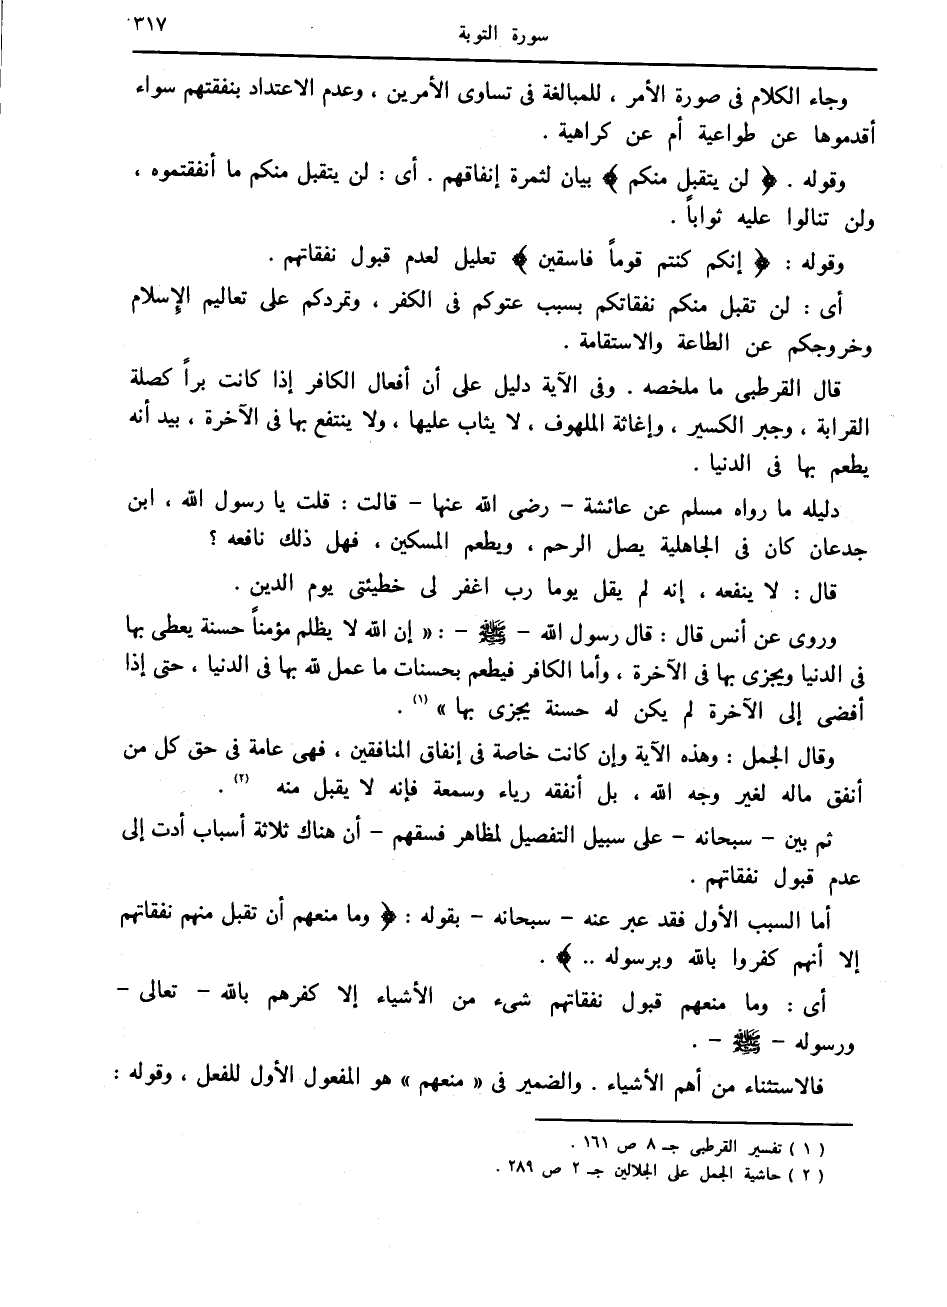 سورة التوبة
٣١٧
وجاء الكلام فى صورة الأمر ، للمبالغة فى تساوى الأمرين ، وعدم الاعتداد بنفقتهم سواء
أقدموها عن طواعية أم عن كراهية .
وقوله . ﴿ لن يتقبل منكم ﴾ بيان لثمرة إنفاقهم . أى : لن يتقبل منكم ما أنفقتموه ،
ولن تنالوا عليه ثواباً .
وقوله : ﴿ إنكم كنتم قوماً فاسقين ﴾ تعليل لعدم قبول نفقاتهم .
أى : لن تقبل منكم نفقاتكم بسبب عتوكم فى الكفر ، وتمردكم على تعاليم الإسلام
وخروجكم عن الطاعة والاستقامة .
قال القرطبى ما ملخصه . وفى الآية دليل على أن أفعال الكافر إذا كانت براً كصلة
القرابة ، وجبر الكسير ، وإغاثة الملهوف ، لا يثاب عليها ، ولا ينتفع بها فى الآخرة ، بيد أنه
يطعم بها فى الدنيا .
دليله ما رواه مسلم عن عائشة – رضى الله عنها – قالت : قلت يا رسول الله ، ابن
جدعان كان فى الجاهلية يصل الرحم ، ويطعم المسكين ، فهل ذلك نافعه ؟
قال : لا ينفعه ، إنه لم يقل يوما رب اغفر لى خطيئتى يوم الدين .
وروى عن أنس قال : قال رسول الله – ﷺ – : « إن الله لا يظلم مؤمناً حسنة يعطى بها
فى الدنيا ويجزى بها فى الآخرة ، وأما الكافر فيطعم بحسنات ما عمل لله بها فى الدنيا ، حتى إذا
أفضى إلى الآخرة لم يكن له حسنة يجزى بها » (١) .
وقال الجمل : وهذه الآية وإن كانت خاصة فى إنفاق المنافقين ، فهى عامة فى حق كل من
أنفق ماله لغير وجه الله ، بل أنفقه رياء وسمعة فإنه لا يقبل منه (٢) .
ثم بين – سبحانه – على سبيل التفصيل لمظاهر فسقهم – أن هناك ثلاثة أسباب أدت إلى
عدم قبول نفقاتهم .
أما السبب الأول فقد عبر عنه – سبحانه – بقوله : ﴿ وما منعهم أن تقبل منهم نفقاتهم
إلا أنهم كفروا بالله وبرسوله .. ﴾ .
أى : وما منعهم قبول نفقاتهم شىء من الأشياء إلا كفرهم بالله – تعالى –
ورسوله – ﷺ – .
فالاستثناء من أهم الأشياء . والضمير فى « منعهم » هو المفعول الأول للفعل ، وقوله :
( ١ ) تفسير القرطبى جـ ٨ ص ١٦١ .
( ٢ ) حاشية الجمل على الجلالين جـ ٢ ص ٢٨٩ .